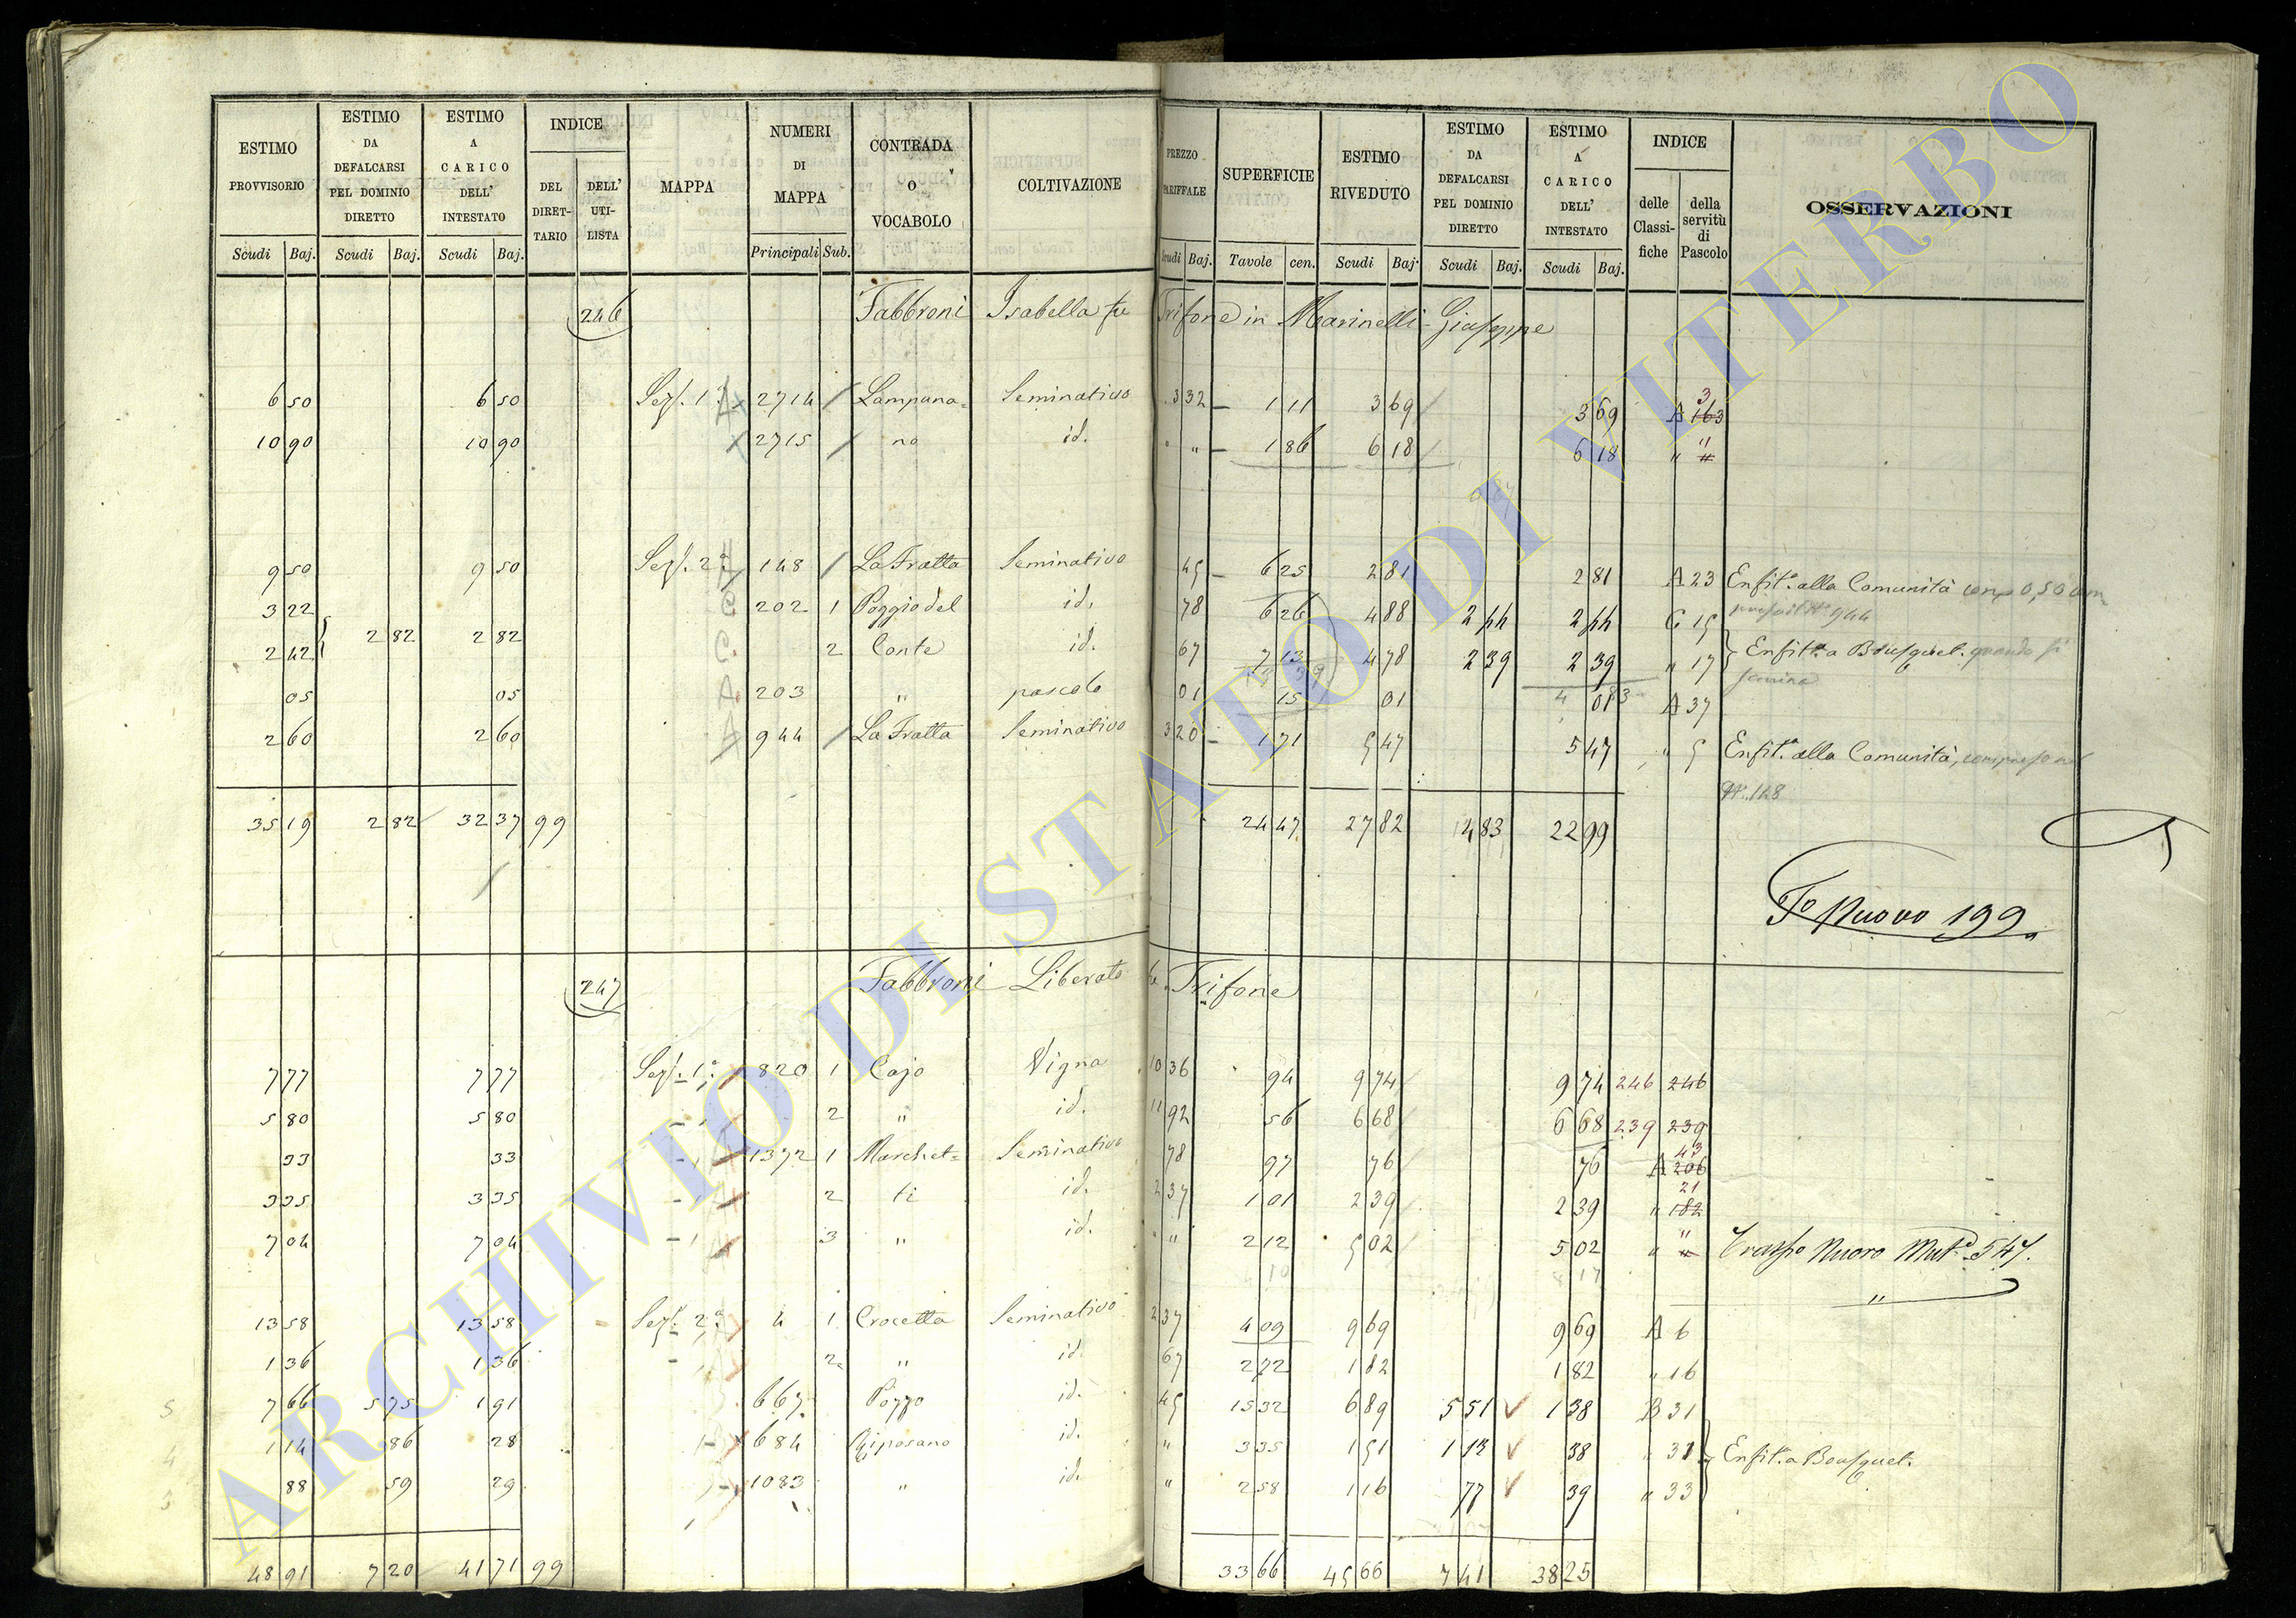 ESTIMO PROVVISORIO | ESTIMO DA DEFALCARSI PEL DOMINIO DIRETTO | ESTIMO A CARICO DELL' INTESTATO | INDICE | MAPPA | NUMERI DI MAPPA | CONTRADA O VOCABOLO | COLTIVAZIONE | PREZZO TARIFFALE | SUPERFICIE | ESTIMO RIVEDUTO | ESTIMO DA DEFALCARSI PEL DOMINIO DIRETTO | ESTIMO A CARICO DELL' INTESTATO | INDICE | OSSERVAZIONI
DEL DIRETTARIO | DELL' UTILISTA | delle Classifiche | della servitù di Pascolo
Scudi | Baj. | Scudi | Baj. | Scudi | Baj. | Principali | Sub. | Scudi | Baj. | Tavole | cen. | Scudi | Baj. | Scudi | Baj. | Scudi | Baj.
246 Fabbroni Isabella fu Trifone in Marinelli Giuseppe
6 50 | 6 50 | Sez. 1ª | 2714 | Lampana= | Seminativo | 3 32 | 1 11 | 3 69 | 3 69 | A 163 3
10 90 | 10 90 | 2715 | no | id. | " " | 1 86 | 6 18 | 6 18 | " "
9 50 | 9 50 | Sez. 2ª | 148 | La Fratta | Seminativo | 45 | 6 25 | 2 81 | 2 81 | A 23 | Enfit. alla Comunità
3 22 | 202 | 1 | Poggio del | id. | 78 | 6 26 | 4 88 | 2 44 | 2 44 | C 15 | 944
2 42 | 2 82 | 2 82 | 2 | Conte | id. | 67 | 7 13 | 4 78 | 2 39 | 2 39 | " 17 | Enfit. a Bousquet. quando si
semina
05 | 05 | 203 | " | pascolo | 01 | 15 | 01 | 01 | A 37
2 60 | 2 60 | 944 | La Fratta | Seminativo | 3 20 | 1 71 | 5 47 | 5 47 | " 5 | Enfit. alla Comunità, compreso nel
N. 148
35 19 | 2 82 | 32 37 | 99 | 24 47 | 27 82 | 4 83 | 22 99
Fo Nuovo 199
247 Fabbroni Liberato fu Trifone
7 77 | 7 77 | Sez. 1ª | 820 | 1 | Cajo | Vigna | 10 36 | 94 | 9 74 | 9 74 | 246 | 246
5 80 | 5 80 | 2 | " | id. | 11 92 | 56 | 6 68 | 6 68 | 239 | 239
33 | 33 | 1372 | 1 | Marchet= | Seminativo | 78 | 97 | 76 | 76 | A 206 43
3 35 | 3 35 | 2 | ti | id. | 2 37 | 1 01 | 2 39 | 2 39 | " 182 21
7 04 | 7 04 | 3 | " | id. | " | 2 12 | 5 02 | 5 02 | " " | Nuovo 547.
"
13 58 | 13 58 | Sez. 2ª | 4 | 1 | Crocetta | Seminativo | 2 37 | 4 09 | 9 69 | 9 69 | A 6
1 36 | 1 36 | 2 | " | id. | 67 | 2 72 | 1 82 | 1 82 | " 16
7 66 | 5 75 | 1 91 | 667 | Pozzo | id. | 45 | 15 32 | 6 89 | 5 51 | 1 38 | B 31
1 14 | 86 | 28 | 684 | Riposano | id. | " | 3 35 | 1 51 | 1 13 | 38 | " 31 | Enfit. a Bousquet.
88 | 59 | 29 | 1083 | " | id. | " | 2 58 | 1 16 | 77 | 39 | " 33
48 91 | 7 20 | 41 71 | 99 | 33 66 | 45 66 | 7 41 | 38 25
ARCHIVIO DI STATO DI VITERBO